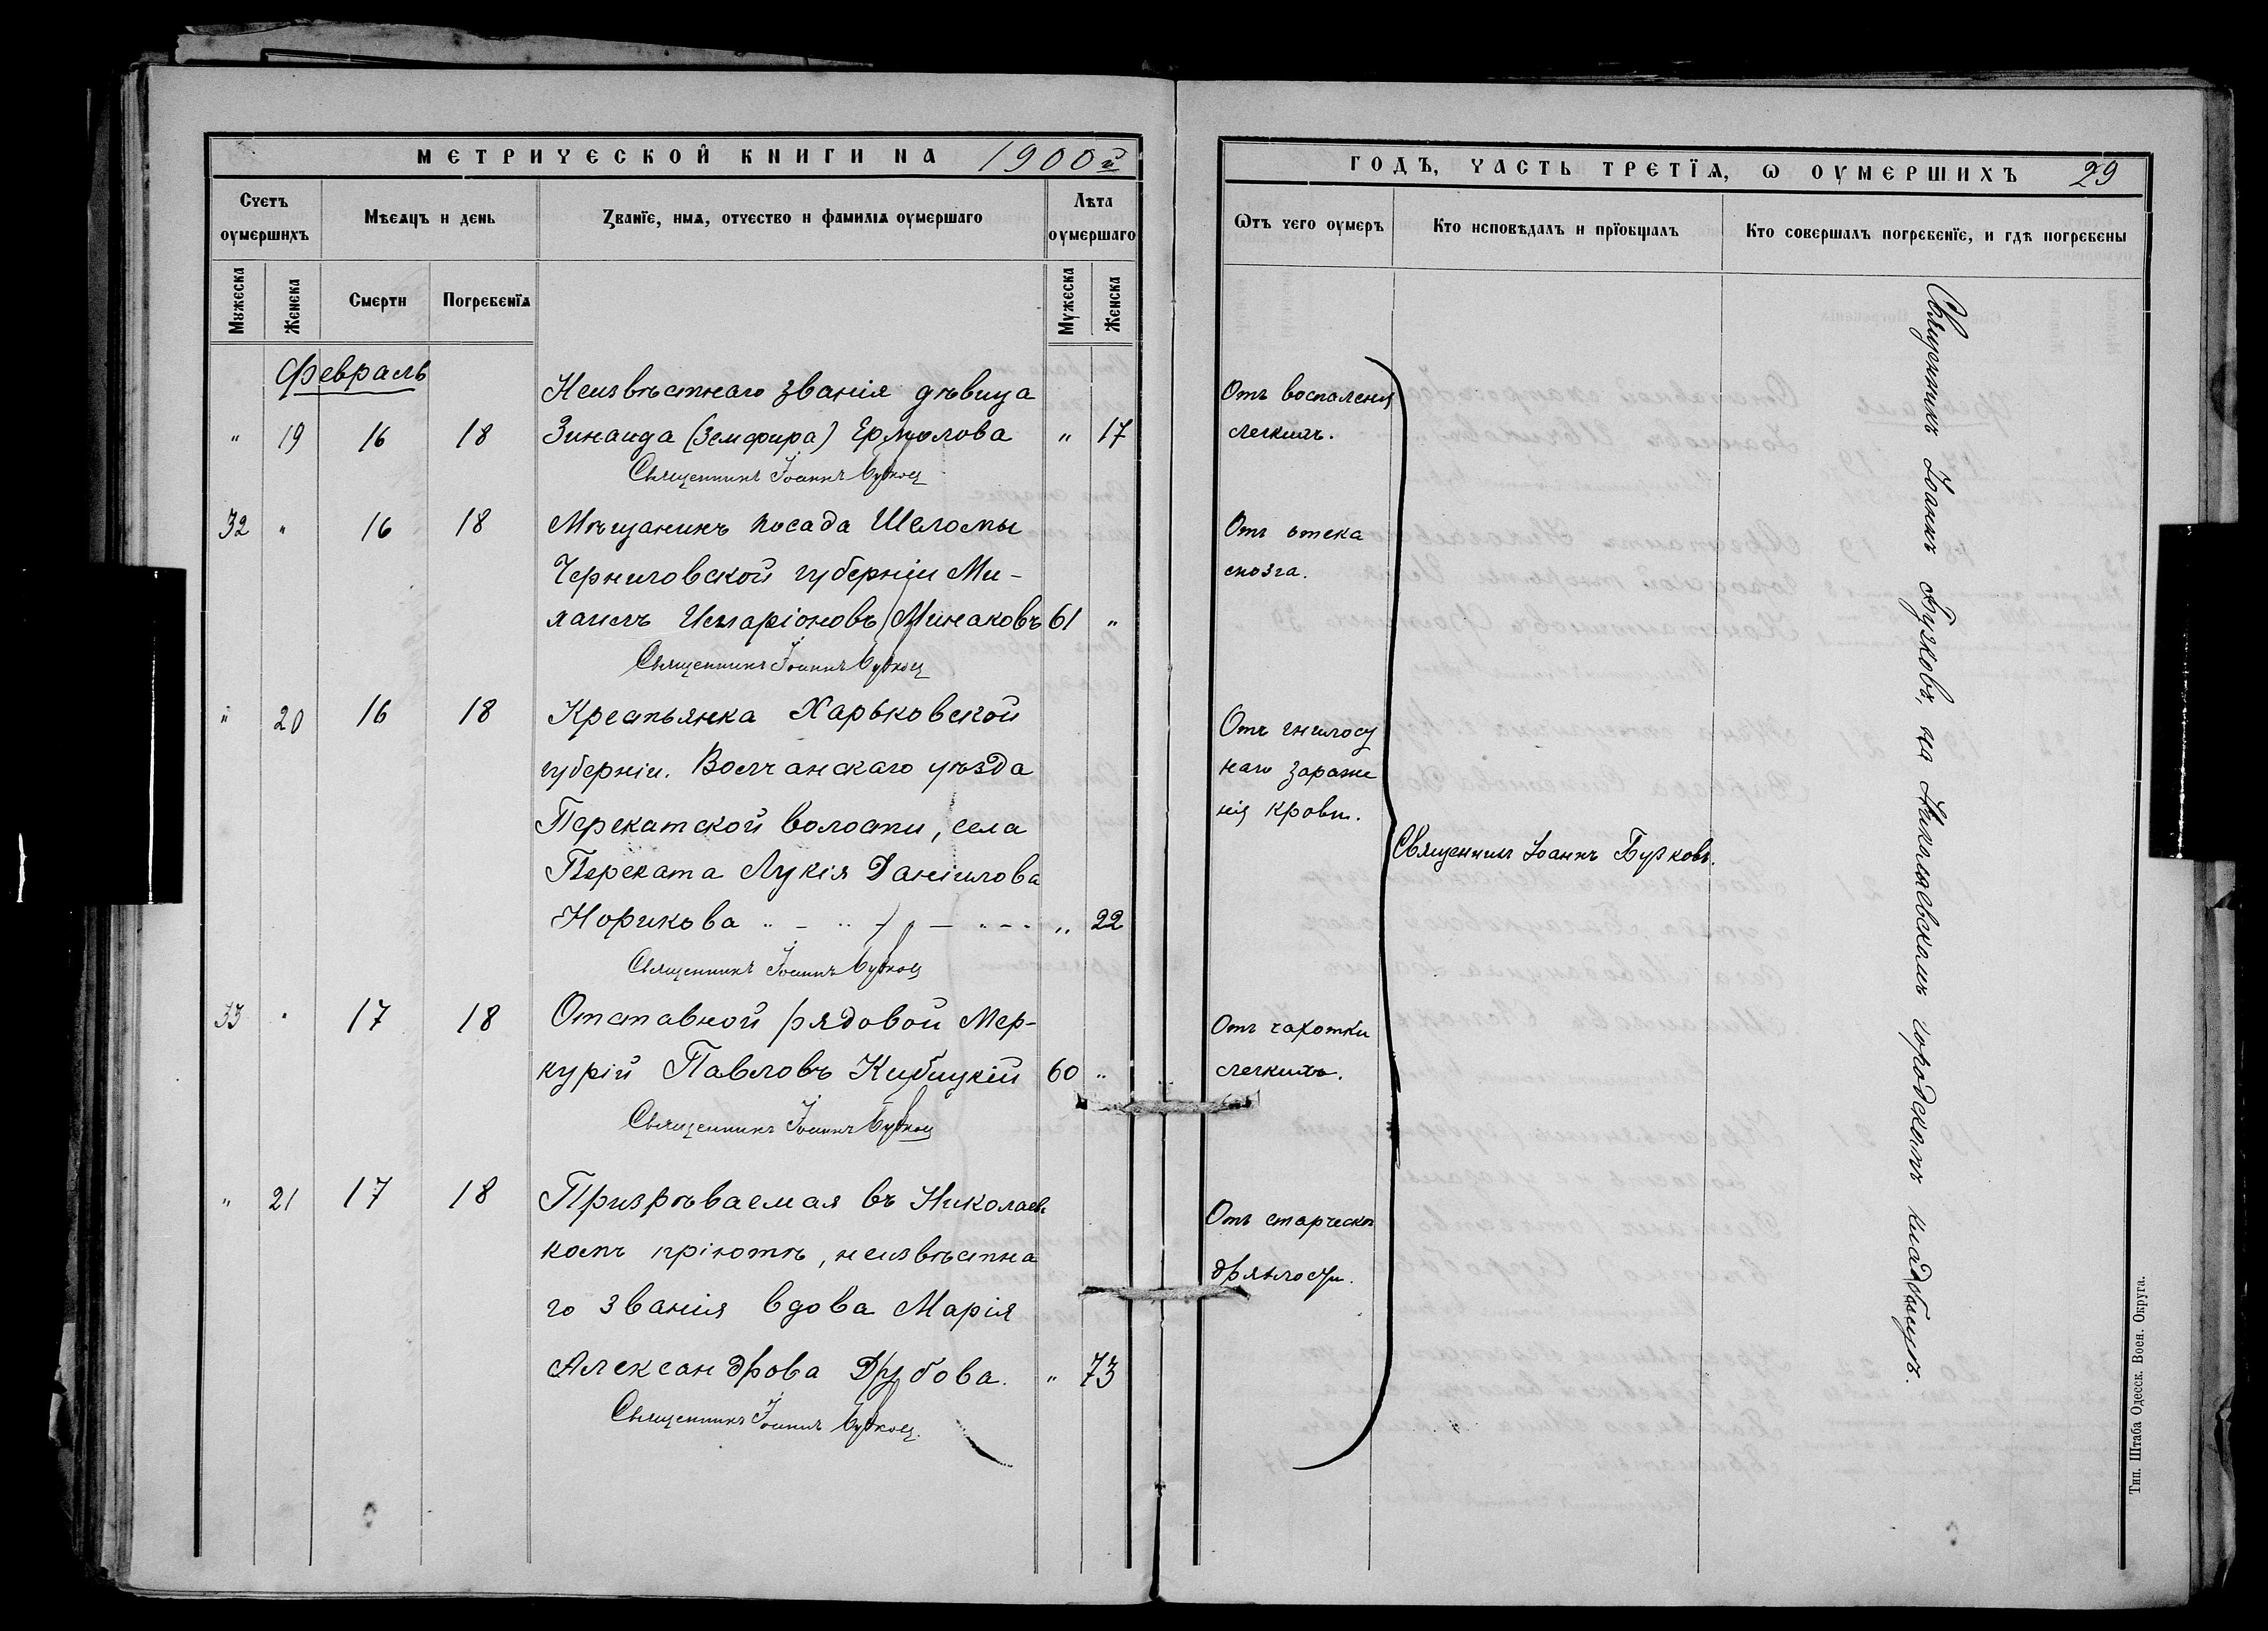 МЕТРИЧЕСКОЙ КНИГИ НА 1900й
Счетъ оумершихъ
Мѣсяцъ и день
Званїе, имя, отчество и фамилїя оумершаго
Лѣта оумершаго
Мужеска
Женска
Смерти
Погребенїя
Мужеска
Женска
Февраль
Неизвѣстнаго званія дѣвица
" 19 16 18 Зинаида (Земфира) Ермолова " 17
Священникъ Іоаннъ Бурковъ
32 " 16 18 Мѣщанинъ посада Шеломы
Черниговской губерніи Ми-
хаилъ Иларіоновъ Минаковъ 61 "
Священникъ Іоаннъ Бурковъ
" 20 16 18 Крестьянка Харьковской
губерніи. Волчанскаго уѣзда
Перекатской волости, села
Переката Лукія Даніилова
Норикова " 22
Священникъ Іоаннъ Бурковъ
33 " 17 18 Отставной рядовой Мер-
курій Павловъ Кибицкій 60 "
Священникъ Іоаннъ Бурковъ
" 21 17 18 Призрѣваемая въ Николаевс
комъ пріютѣ, неизвѣстна
го званія вдова Марія
Александрова Дубова. " 73
Священникъ Іоаннъ Бурковъ.
ГОДЪ, ЧАСТЬ ТРЕТЇЯ, Ѡ ОУМЕРШИХЪ 29
Ѿтъ чего оумеръ
Кто исповѣдалъ и прїобщалъ
Кто совершалъ погребенїе, и гдѣ погребены
Отъ воспаленія
легкихъ.
Отъ отека
мозга.
Отъ гнилост
наго зараже
нія крови.
Священникъ Іоаннъ Бурковъ.
Отъ чахотки
легкихъ.
Отъ старческой
дряхлости.
Священникъ Іоаннъ Бурковъ, на Николаевскомъ городскомъ кладбищѣ.
Тип. Штаба Одесск. Воен. Округа.